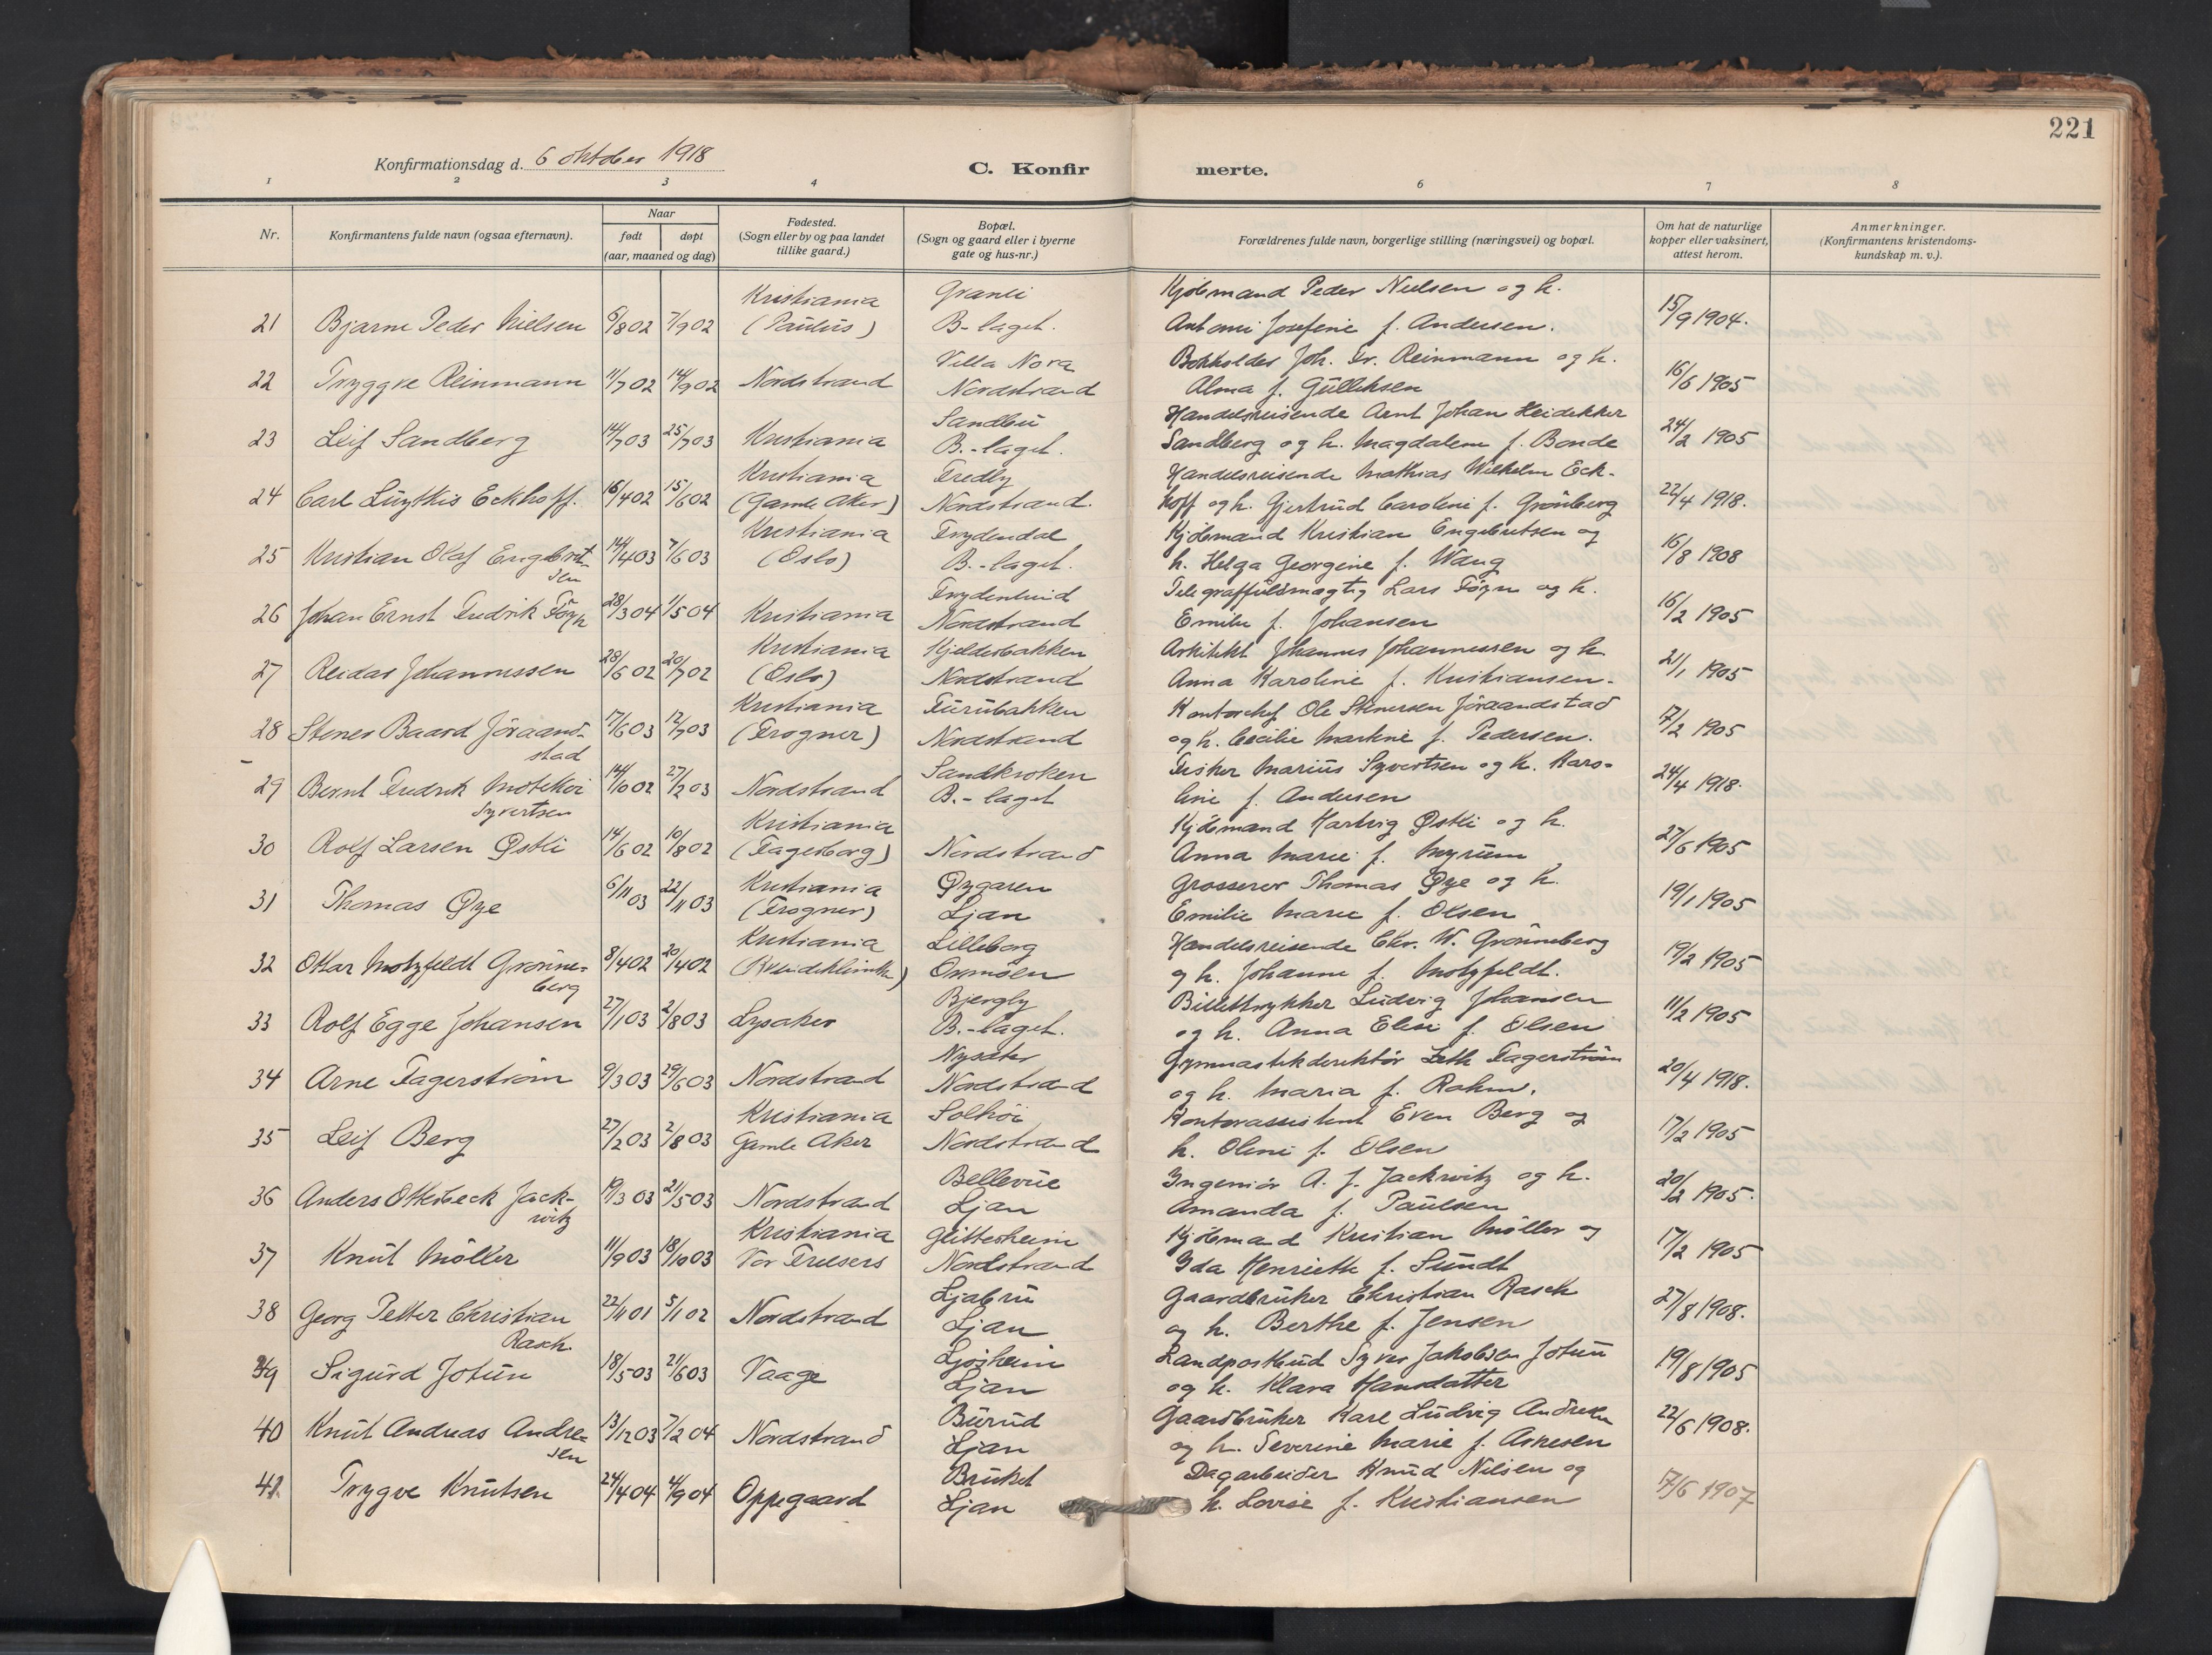 221
Konfirmationsdag d. 6 oktober 1918
C. Konfirmerte.
1 2 3 4 6 7 8
Nr.
Konfirmantens fulde navn (ogsaa efternavn).
Naar
født døpt
(aar, maaned og dag)
Fødested.
(Sogn eller by og paa landet
tillike gaard.)
Bopæl.
(Sogn og gaard eller i byerne
gate og hus-nr.)
Forældrenes fulde navn, borgerlige stilling (næringsvei) og bopæl.
Om hat de naturlige
kopper eller vaksinert,
attest herom.
Anmerkninger.
(Konfirmantens kristendoms-
kundskap m. v.).
Kristiania Granli Kjøbmand Peder Nielsen og h.
21 Bjarne Peder Nielsen 6/8 02 7/9 02 (Paulus) B-laget. Antoni Josefine f. Andersen. 15/9 1904.
Villa Nora Bokholder Joh. Fr. Reinmann og h.
22 Tryggve Reinmann 11/7 02 14/9 02 Nordstrand Nordstrand Alma f. Gulliksen 16/6 1905
Sandbu Handelsreisende Arnt Johan Heidekker
23 Leif Sandberg 14/7 03 25/7 03 Kristiania B.-laget. Sandberg og h. Magdalene f. Bonde 24/2 1905
Kristiania Fredly Handelsreisende Mathias Wilhelm Eck-
24 Carl Lüytkis Eckhoff. 16/4 02 15/6 02 (Gamle Aker) Nordstrand. hoff og h. Gjertrud Caroline f. Grønberg 22/4 1918.
Kristiania Frydendal Kjøbmand Kristian Engebretsen og
25 Kristian Olaf Engebret- 14/4 03 7/6 03 (Oslo) B.-laget. h. Helga Georgine f. Wang 16/8 1908
sen Frydenlund Telegraffuldmægtig Lars Føyn og h.
26 Johan Ernst Fredrik Føyn 28/3 04 1/5 04 Kristiania Nordstrand Emilie f. Johansen 16/2 1905
Kristiania Kjelderbakken Arkitekt Johannes Johannessen og h
27 Reidar Johannessen 28/6 02 20/7 02 (Oslo) Nordstrand Anna Karoline f. Kristiansen. 21/1 1905
Kristiania Furubakken Kontorchef Ole Stenersen Jøraandstad
28 Stener Baard Jøraand- 17/6 03 12/7 03 (Frogner) Nordstrand og h. Cecilie Martine f. Pedersen. 17/2 1905
stad Sandkroken Fisker Marius Syvertsen og h. Karo-
29 Bernt Fredrik 14/10 02 27/2 03 Nordstrand B.-laget line f. Andersen 24/4 1918.
Syvertsen Kristiania Kjøbmand Hartvig Østli og h.
30 Rolf Larsen Østli 14/6 02 10/8 02 (Fagerborg) Nordstrand Anna Marie f. Myrum 27/6 1905
Kristiania Øygaren Grosserer Thomas Øye og h.
31 Thomas Øye 6/11 03 22/11 03 (Frogner) Ljan Emilie Marie f. Olsen 19/1 1905
Kristiania Lilleborg Handelsreisende Chr. W. Grønneberg
32 Ottar Motzfeldt Grønne- 8/4 02 20/4 02 Ormøen og h. Johanne f. Motzfeldt. 19/2 1905
berg Bjergly Billettrykker Ludvig Johansen
33 Rolf Egge Johansen 27/1 03 2/8 03 Lysaker B.-laget. og h. Anna Elise f. Olsen 11/2 1905
Nysæter Gymnastikdirektør Seth Fagerstrøm
34 Arne Fagerstrøm 9/3 03 29/6 03 Nordstrand Nordstrand og h. Maria f. Rahm. 20/4 1918.
Kristiania Solhøi Kontorassistent Even Berg og
35 Leif Berg 27/2 03 2/8 03 Gamle Aker Nordstrand h. Oline f. Olsen 17/2 1905
Bellevue Ingeniør A. J. Jackwitz og h.
36 Anders Otterbeck Jack- 19/3 03 21/5 03 Nordstrand Ljan Amanda f. Paulsen 20/2 1905.
witz Kristiania Glitterheim Kjøbmand Kristian Møller og
37 Knut Møller 11/9 03 18/10 03 Vor Frelsers Nordstrand Ida Henriette f. Sundt 17/2 1905
Ljabru Gaardbruker Christian Rasch
38 Georg Petter Christian 22/11 01 5/1 02 Nordstrand Ljan og h. Berthe f. Jensen 27/8 1908.
Rasch. Ljosheim Landpostbud Syver Jakobsen Jotun
39 Sigurd Jotun 18/5 03 21/6 03 Vaage Ljan og h. Klara Hansdatter 19/8 1905
Burud Gaardbruker Karl Ludvig Andresen
40 Knut Andreas Andre- 13/12 03 7/2 04 Nordstrand Ljan og h. Severine Marie f. Askesen 22/6 1908.
sen Bruket Dagarbeider Knud Nilsen og
41 Trygve Knutsen 24/4 04 4/9 04 Oppegaard Ljan h. Lovise f. Kristiansen 17/6 1907